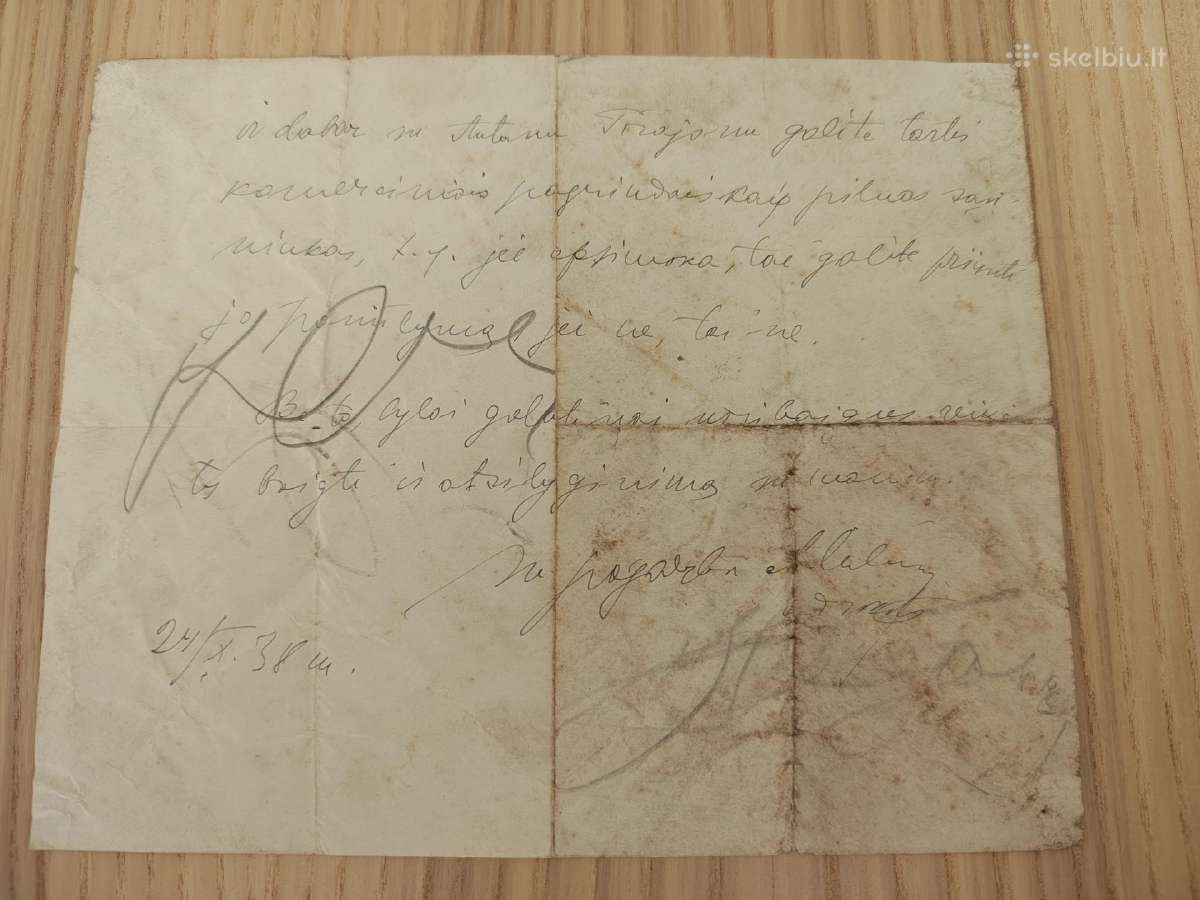 skelbiu.lt
ir dabar su Antanu Trajonu galite tartis
komerciniais pagrindais kaip pilnas sąni-
ninkas, t. y. jei apsimoka, tai galite priimti
jo pasiūlymą, jei ne, tai-ne.
Be to, bylai galutinai užsibaigus
baigti ir atsilyginimą su manim.
Su pagarba
24/X. 38 m.